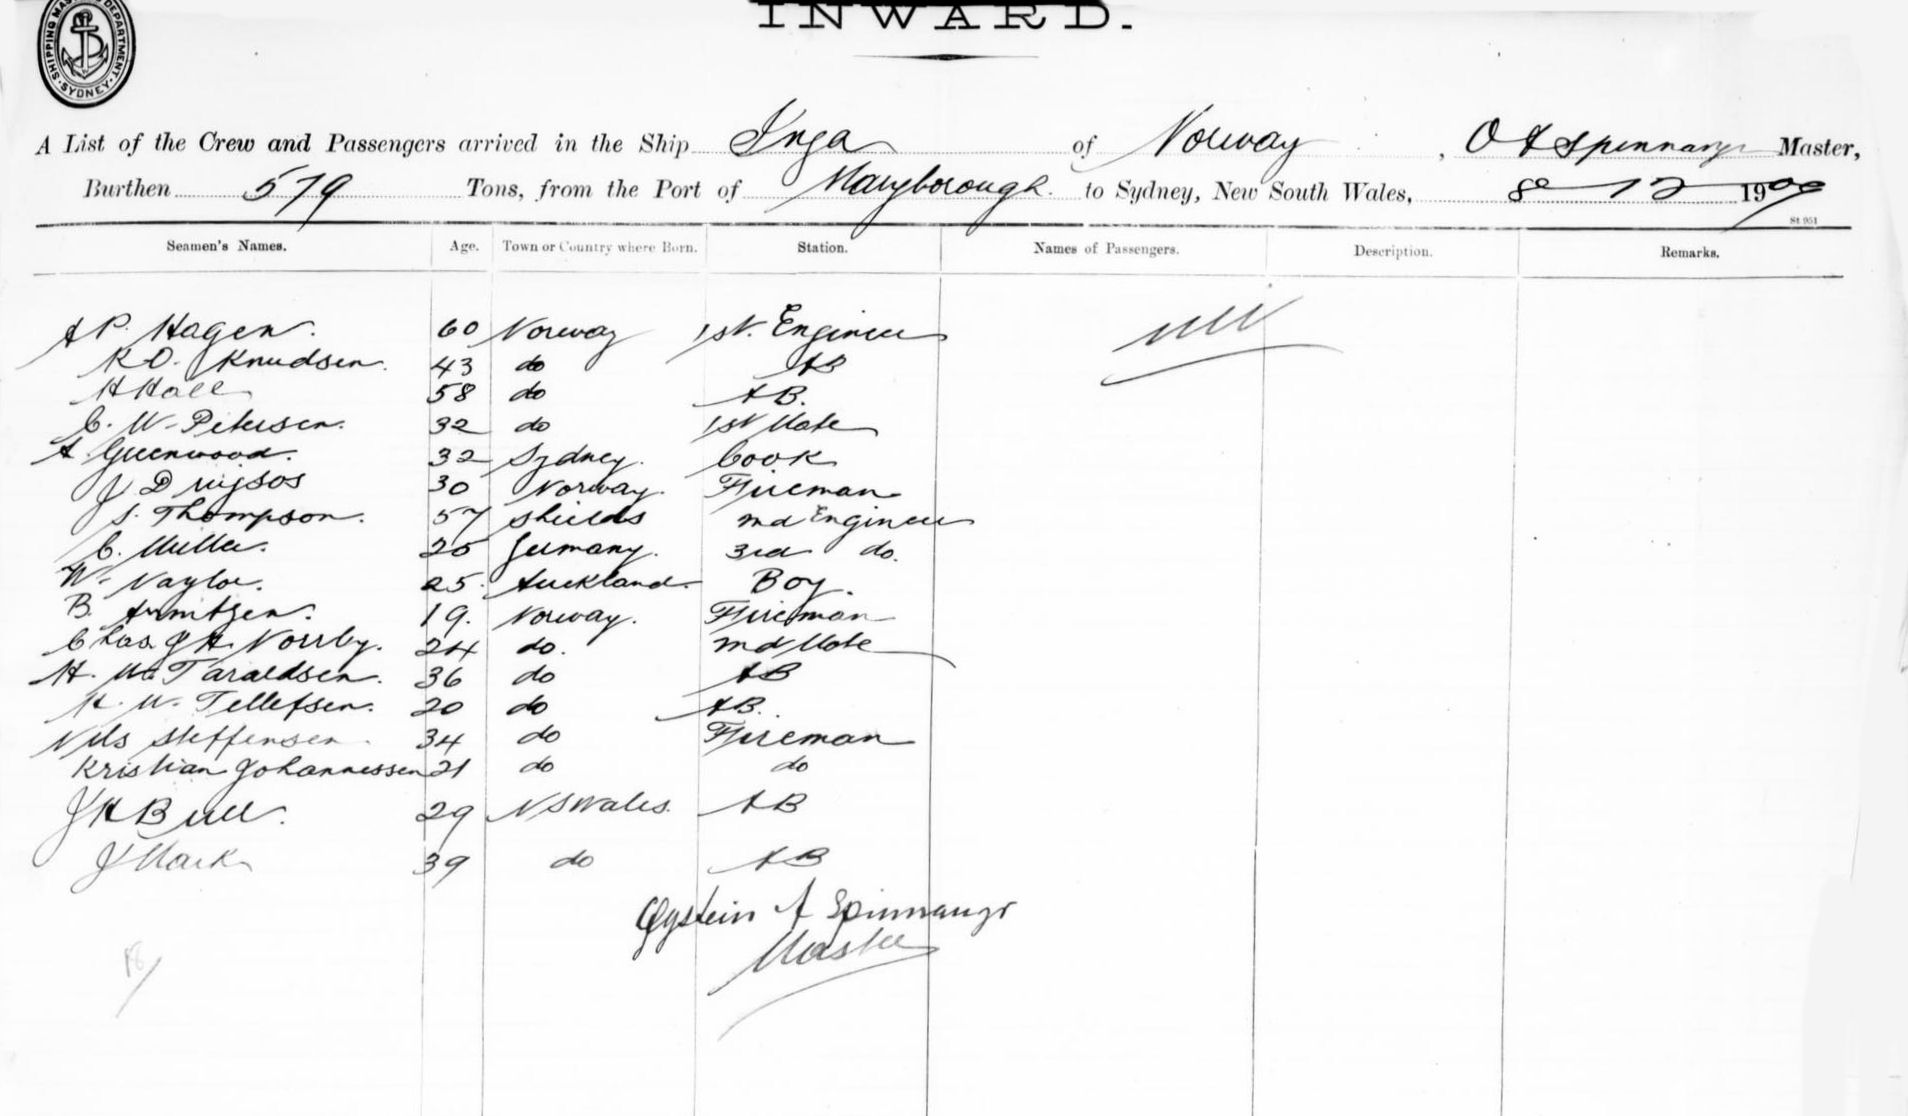 SHIPPING MASTER'S DEPARTMENT SYDNEY
INWARD.
A List of the Crew and Passengers arrived in the Ship Inga of Norway, O A Spinnangr Master,
Burthen 579 Tons, from the Port of Maryborough to Sydney, New South Wales, 8 12 1909
St 951
Seamen's Names. Age. Town or Country where Born. Station. Names of Passengers. Description. Remarks.
A P. Hagen. 60 Norway 1st. Engineer Nil
K O. Knudsen. 43 do AB
H Hall 58 do AB.
C. W. Petersen. 32 do 1st Mate
A. Greenwood. 32 Sydney. Cook
J D 30 Norway. Fireman
S. Thompson. 57 Shields 2nd Engineer
C. Muller. 25 Germany. 3rd do.
W. Naylor. 25. Auckland. Boy.
B. Arntzen. 19. Norway. Fireman
Chas. J H. Norrby. 24 do. 2nd Mate
H. M. Taraldsen. 36 do AB
K. M. Tellefsen. 20 do AB.
Nils Steffensen. 34 do Fireman
Kristian Johannessen 21 do do
J H Bull. 29 N S Wales. AB
J Mark 39 do AB
Øystein A Spinnangr
Master
18/